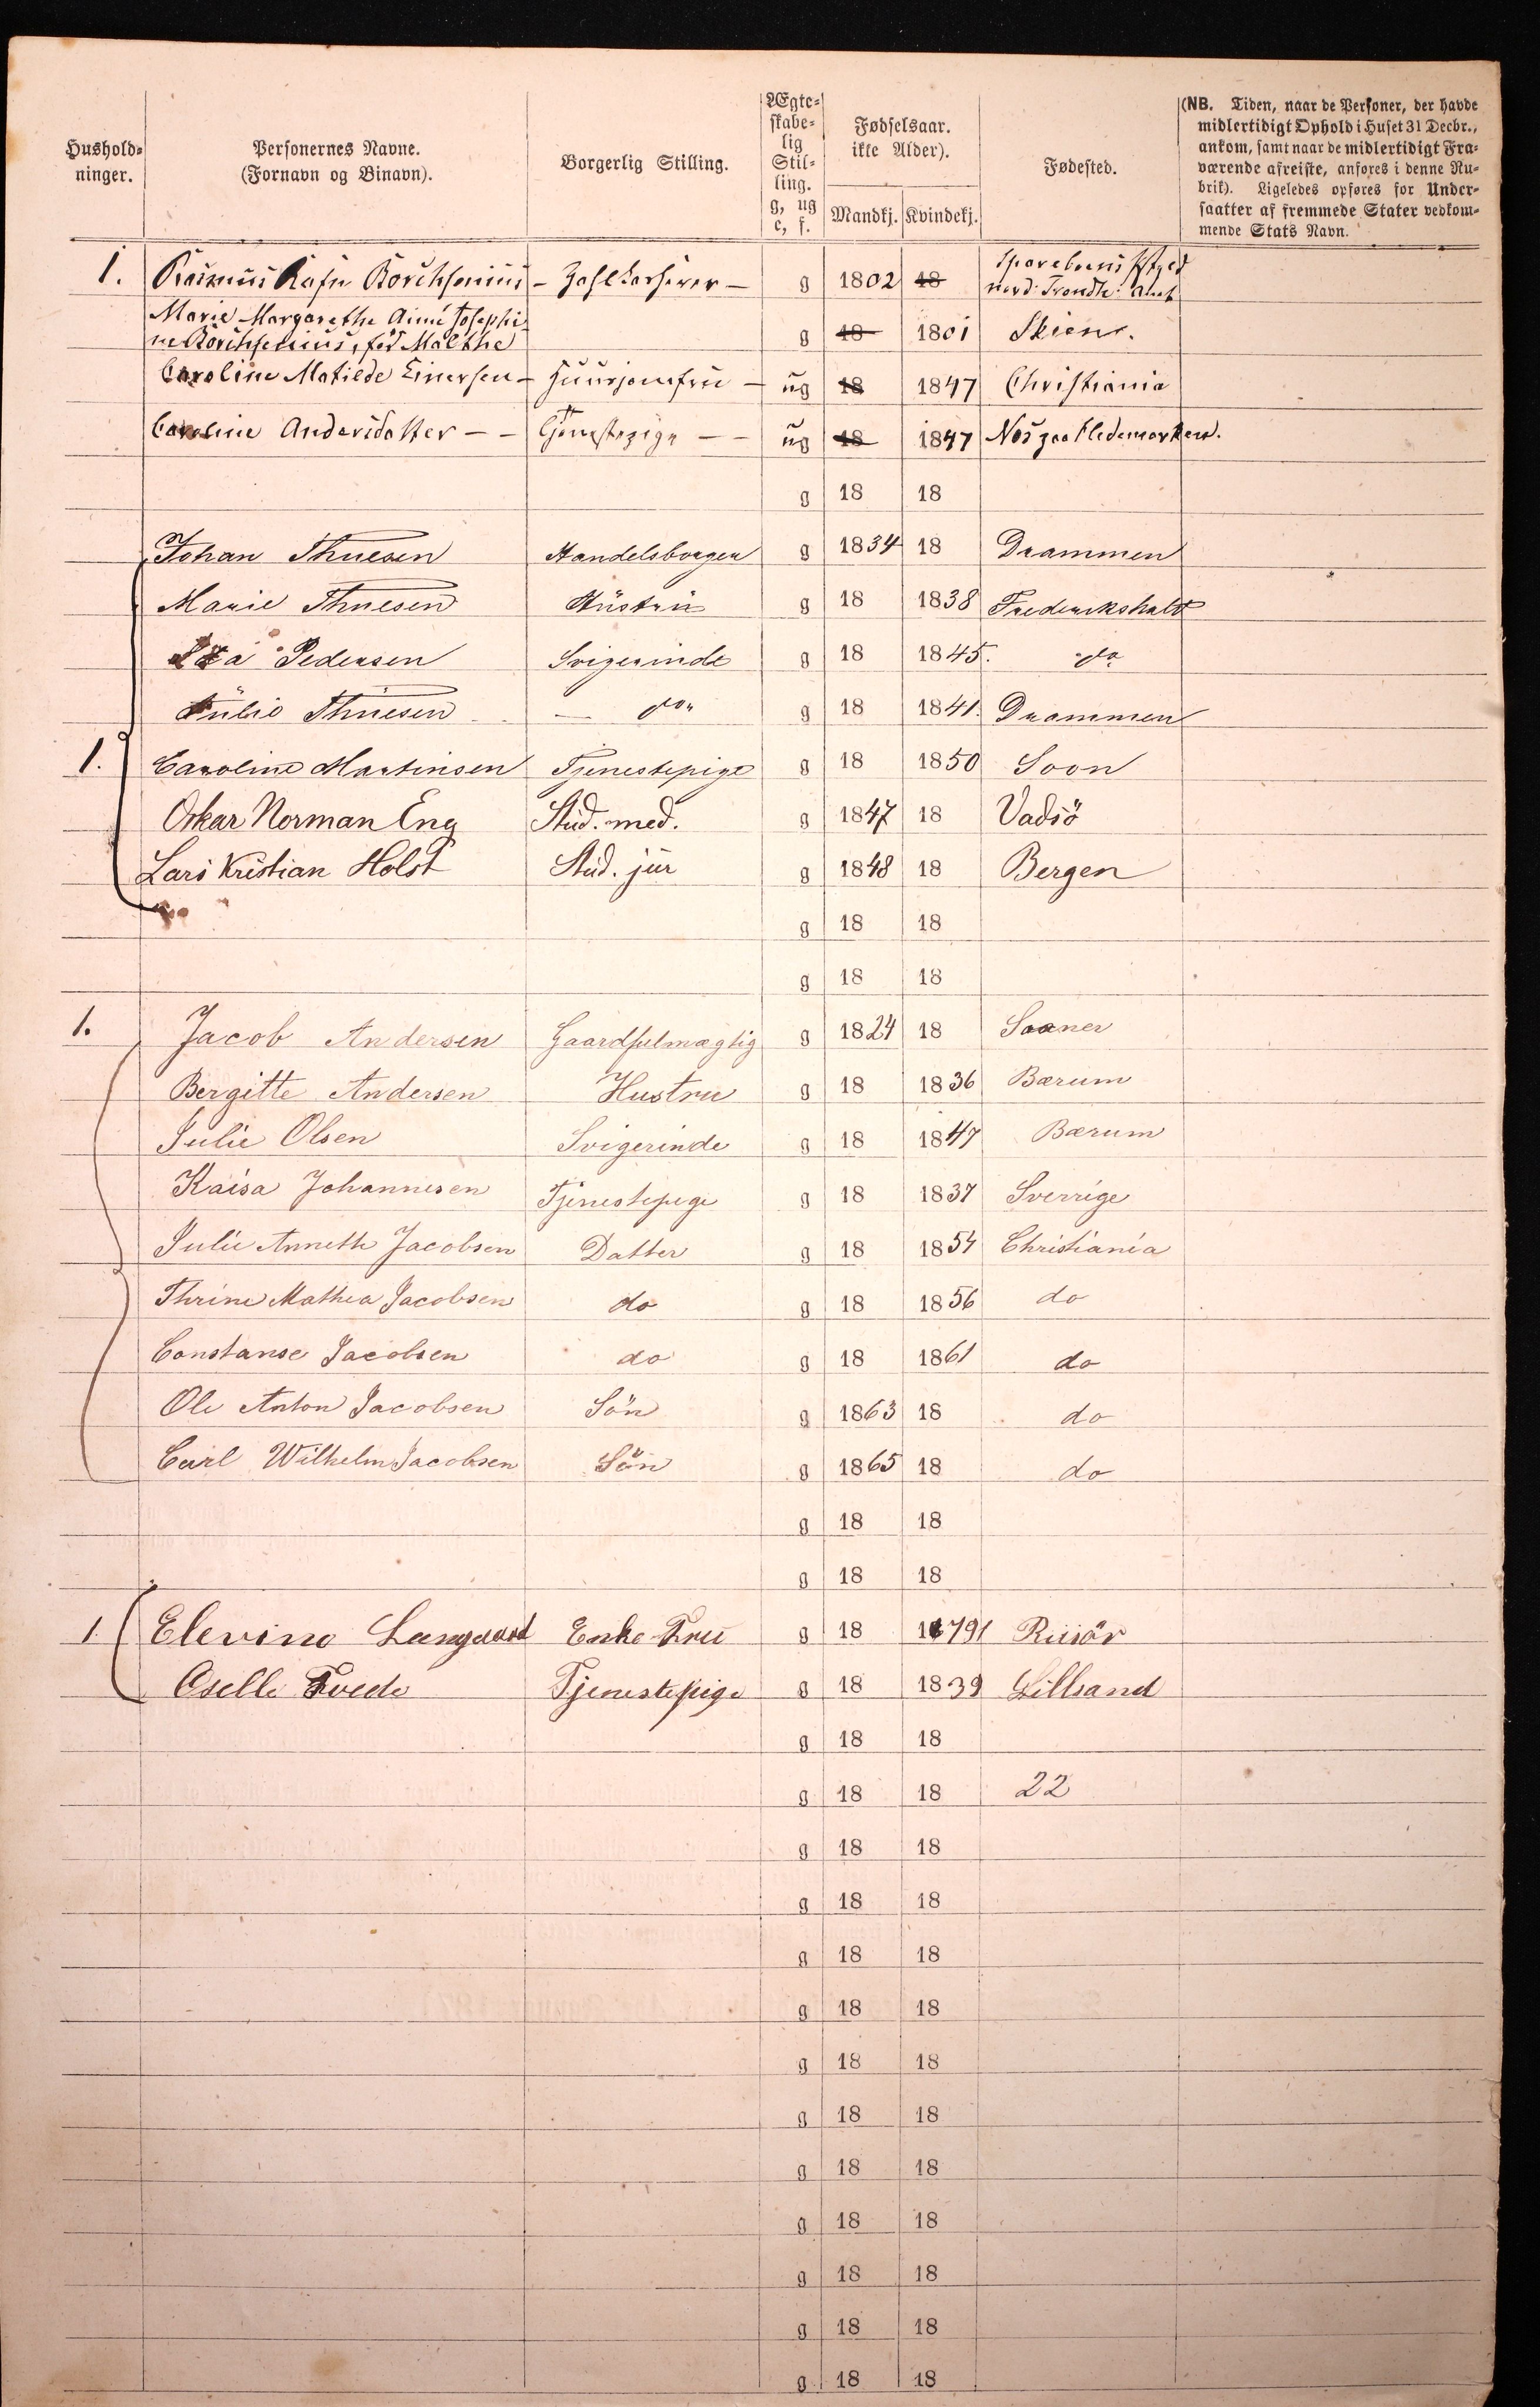 Hushold-
ninger.
Personernes Navne.
(Fornavn og Binavn).
Borgerlig Stilling.
Ægte-
skabe-
lig
Stil-
ling.
g, ug
e, f.
Fødselsaar.
ikke Alder).
Mandkj. Kvindekj.
Fødested.
(NB. Tiden, naar de Personer, der havde
midlertidigt Ophold i Huset 31 Decbr.,
ankom, samt naar de midlertidigt Fra-
værende afreiste, anføres i denne Ru-
brik). Ligeledes opføres for Under-
saatter af fremmede Stater vedkom-
mende Stats Navn.
1. Rasmus Rafn Borchsenius – Zahlkasserer – g 1802 18 Spareboens Pstgd nord: Trondh: Amt
Marie Margarethe Aimé Josephi-
ne Borchsenius, fød Malthe g 18 1801 Skien.
Caroline Matilde Einersen – Huusjomfru – ug 18 1847 Christiania
Caroline Andersdatter – – Tjenestepige – – ug 18 1847 Næs paa Hedemarken.
g 18 18
Johan Thuesen Handelsborger g 1834 18 Drammen
Marie Thuesen Hustru g 18 1838 Frederikshald
Pedersen Svigerinde g 18 1845. do
Julie Thuesen – do g 18 1841. Drammen
1. Caroline Martinsen Tjenestepige g 18 1850 Soon
Oskar Norman Eng Stud. med. g 1847 18 Vadsö
Lars Kristian Holst Stud. jur g 1848 18 Bergen
g 18 18
g 18 18
1. Jacob Andersen Gaardfulmægtig g 1824 18 Saaner
Bergitte Andersen Hustru g 18 1836 Bærum
Julie Olsen Svigerinde g 18 1847 Bærum
Kaisa Johannesen Tjenestepige g 18 1837 Sverrige
Julie Annette Jacobsen Datter g 18 1854 Christiania
Thrine Mathea Jacobsen do g 18 1856 do
Constanse Jacobsen do g 18 1861 do
Ole Anton Jacobsen Sön g 1863 18 do
Carl Wilhelm Jacobsen Sön g 1865 18 do
g 18 18
g 18 18
1 Elevine Langaard Enke Fru g 18 1791 Riisör
Oselle Tvede Tjenestepige g 18 1839 Lillsand
g 18 18
g 18 18 22
g 18 18
g 18 18
g 18 18
g 18 18
g 18 18
g 18 18
g 18 18
g 18 18
g 18 18
g 18 18
g 18 18